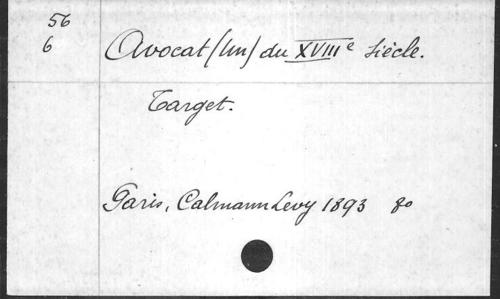 56
6
Avocat (Un) du XVIIIe Siècle.
Target.
Paris, Calmann Levy 1893 8o